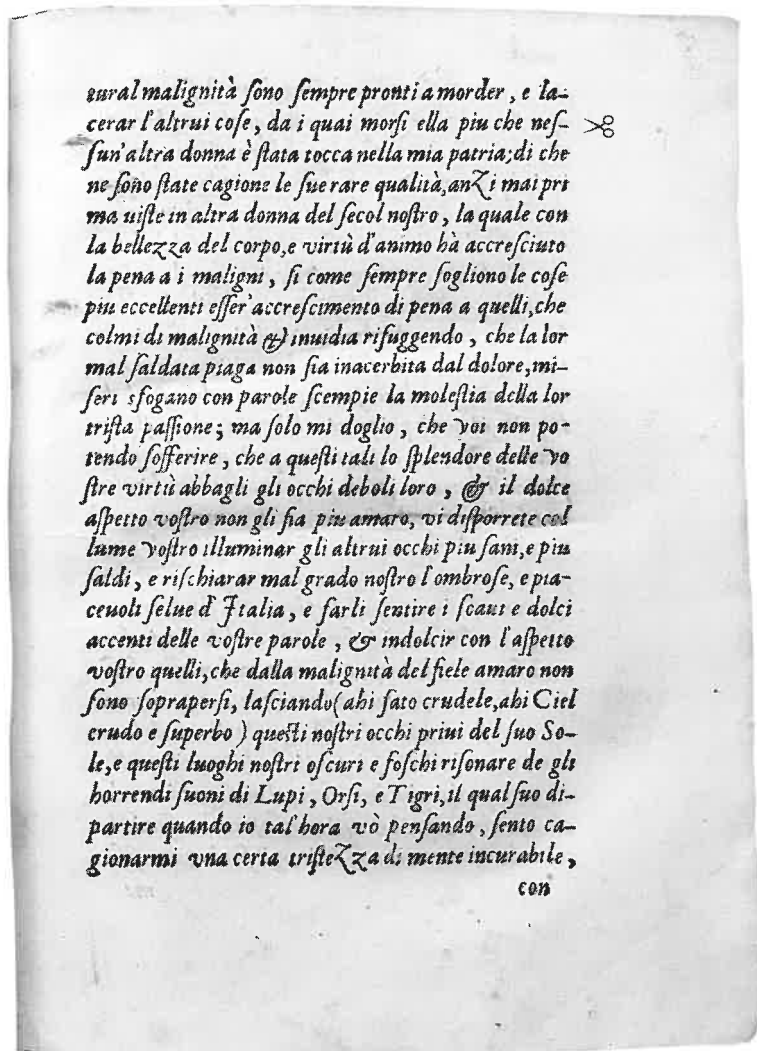 tural malignità ſono ſempre pronti a morder, e la-
cerar l'altrui coſe, da i quai morſi ella piu che neſ-
ſun'altra donna è ſtata tocca nella mia patria; di che
ne ſono ſtate cagione le ſue rare qualità, anzi mai pri
ma uiſte in altra donna del ſecol noſtro, la quale con
la bellezza del corpo, e virtù d'animo hà accreſciuto
la pena a i maligni, ſi come ſempre ſogliono le coſe
piu eccellenti eſſer'accreſcimento di pena a quelli, che
colmi di malignità & inuidia rifuggendo, che la lor
mal ſaldata piaga non ſia inacerbita dal dolore, mi-
ſeri sfogano con parole ſcempie la moleſtia della lor
triſta paſſione; ma ſolo mi doglio, che voi non po-
tendo ſofferire, che a queſti tali lo ſplendore delle vo
ſtre virtù abbagli gli occhi deboli loro, & il dolce
aſpetto voſtro non gli ſia piu amaro, vi diſporrete col
lume voſtro illuminar gli altrui occhi piu ſani, e piu
ſaldi, e riſchiarar mal grado noſtro l'ombroſe, e pia-
ceuoli ſelue d'Italia, e farli ſentire i ſcaui e dolci
accenti delle voſtre parole, & indolcir con l'aſpetto
voſtro quelli, che dalla malignità del fiele amaro non
ſono ſopraperſi, laſciando (ahi fato crudele, ahi Ciel
crudo e ſuperbo) queſti noſtri occhi priui del ſuo So-
le, e queſti luoghi noſtri oſcuri e foſchi riſonare de gli
horrendi ſuoni di Lupi, Orſi, e Tigri, il qual ſuo di-
partire quando io tal'hora vò penſando, ſento ca-
gionarmi vna certa triſtezza di mente incurabile,
con